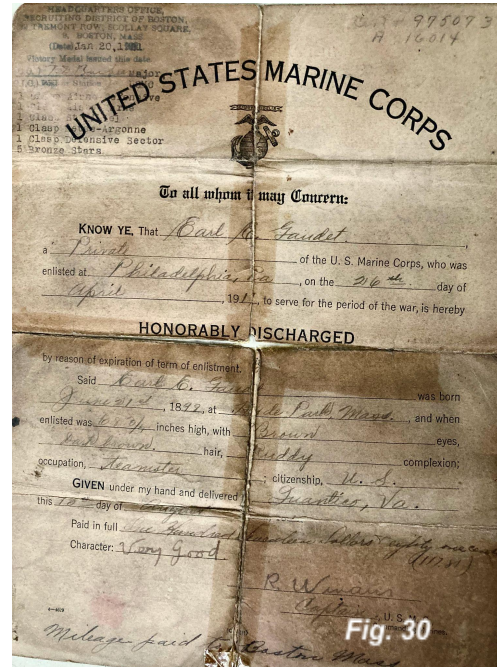 HEADQUARTERS OFFICE,
RECRUITING DISTRICT OF BOSTON,
TREMONT ROW, SCOLLAY SQUARE,
BOSTON, MASS
(Date) Jan 20, 19
Victory Medal issued this date
Major
1 Clasp
1 Clasp Meuse-Argonne
1 Clasp Defensive Sector
5 Bronze Stars
975073
A 16014
UNITED STATES MARINE CORPS
To all whom it may Concern:
KNOW YE, That Earl C. Gaudet,
a Private of the U. S. Marine Corps, who was
enlisted at Philadelphia, Pa, on the 26th day of
April, 191, to serve for the period of the war, is hereby
HONORABLY DISCHARGED
by reason of expiration of term of enlistment.
Said Earl C. was born
June 21st, 1892, at Hyde Park, Mass. and when
enlisted was inches high, with Brown eyes,
Dark brown hair, Ruddy complexion;
occupation, teamster; citizenship, U. S.
GIVEN under my hand and delivered Quantico, Va.
this day of August
Paid in full One Hundred Dollars
Character: Very Good
R Winans
Captain, U. S. M
Mileage paid to Boston Mass
Fig. 30